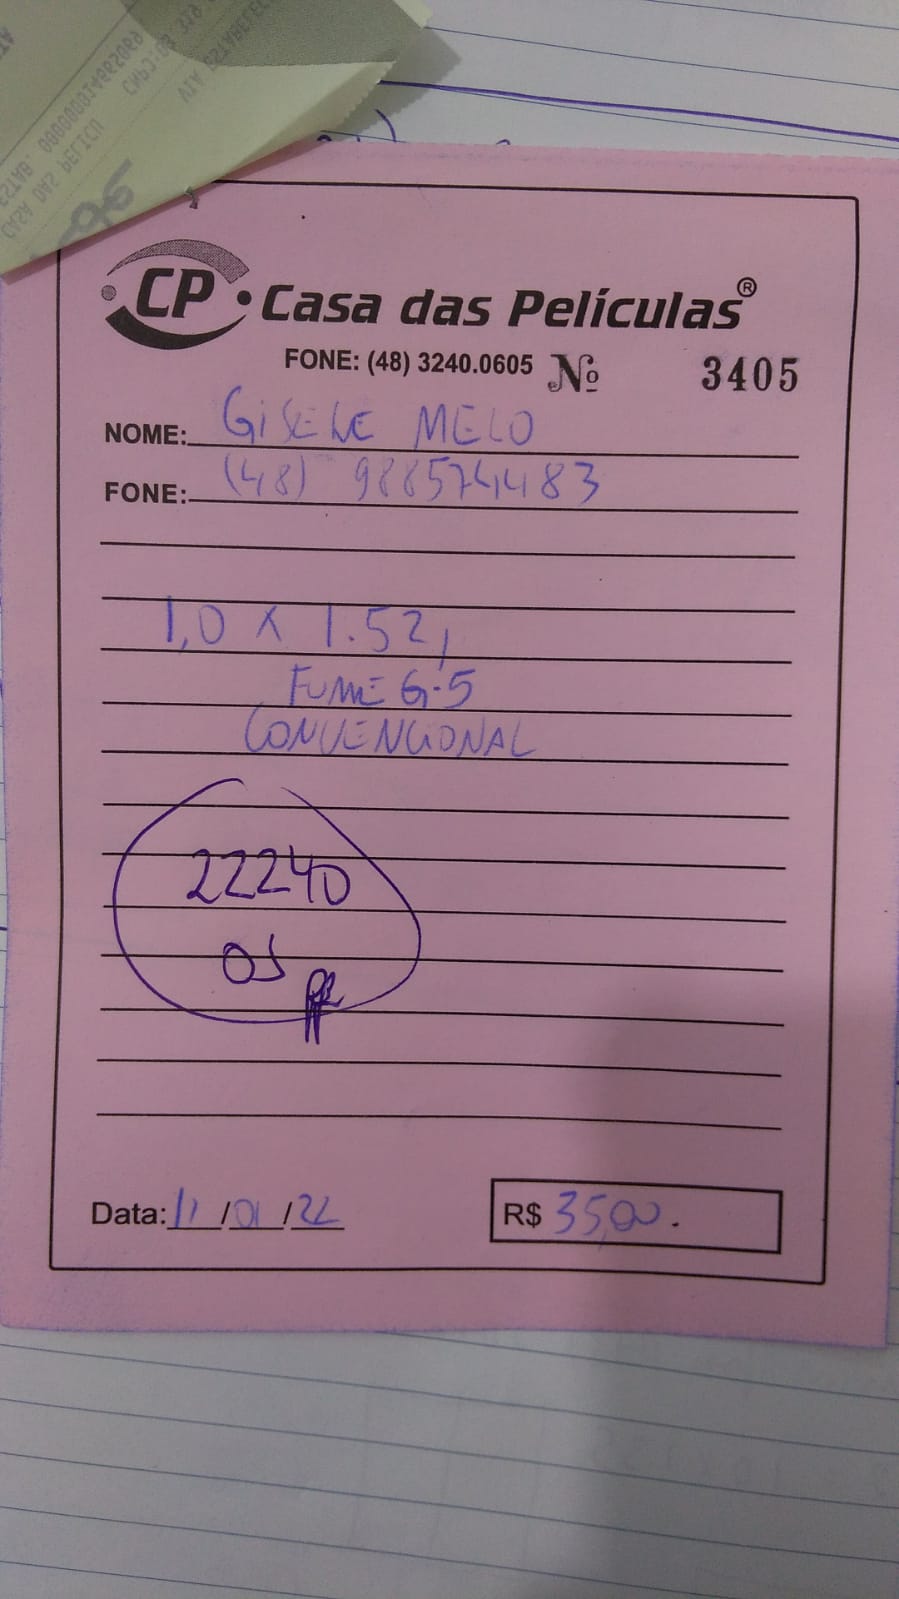 CP Casa das Películas®
FONE: (48) 3240.0605 Nº 3405
NOME: GISELE MELO
FONE: (48) 988574483
1,0 X 1.52,
FUME G-5
CONVENCIONAL
22240
OS
Data: 11/01/22
R$ 35,00.